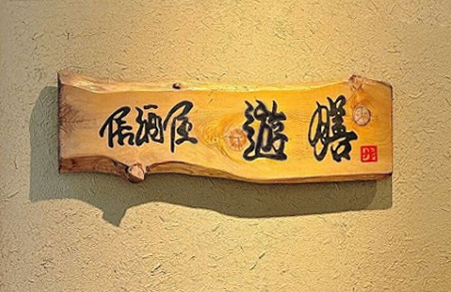 居酒屋 遊膳